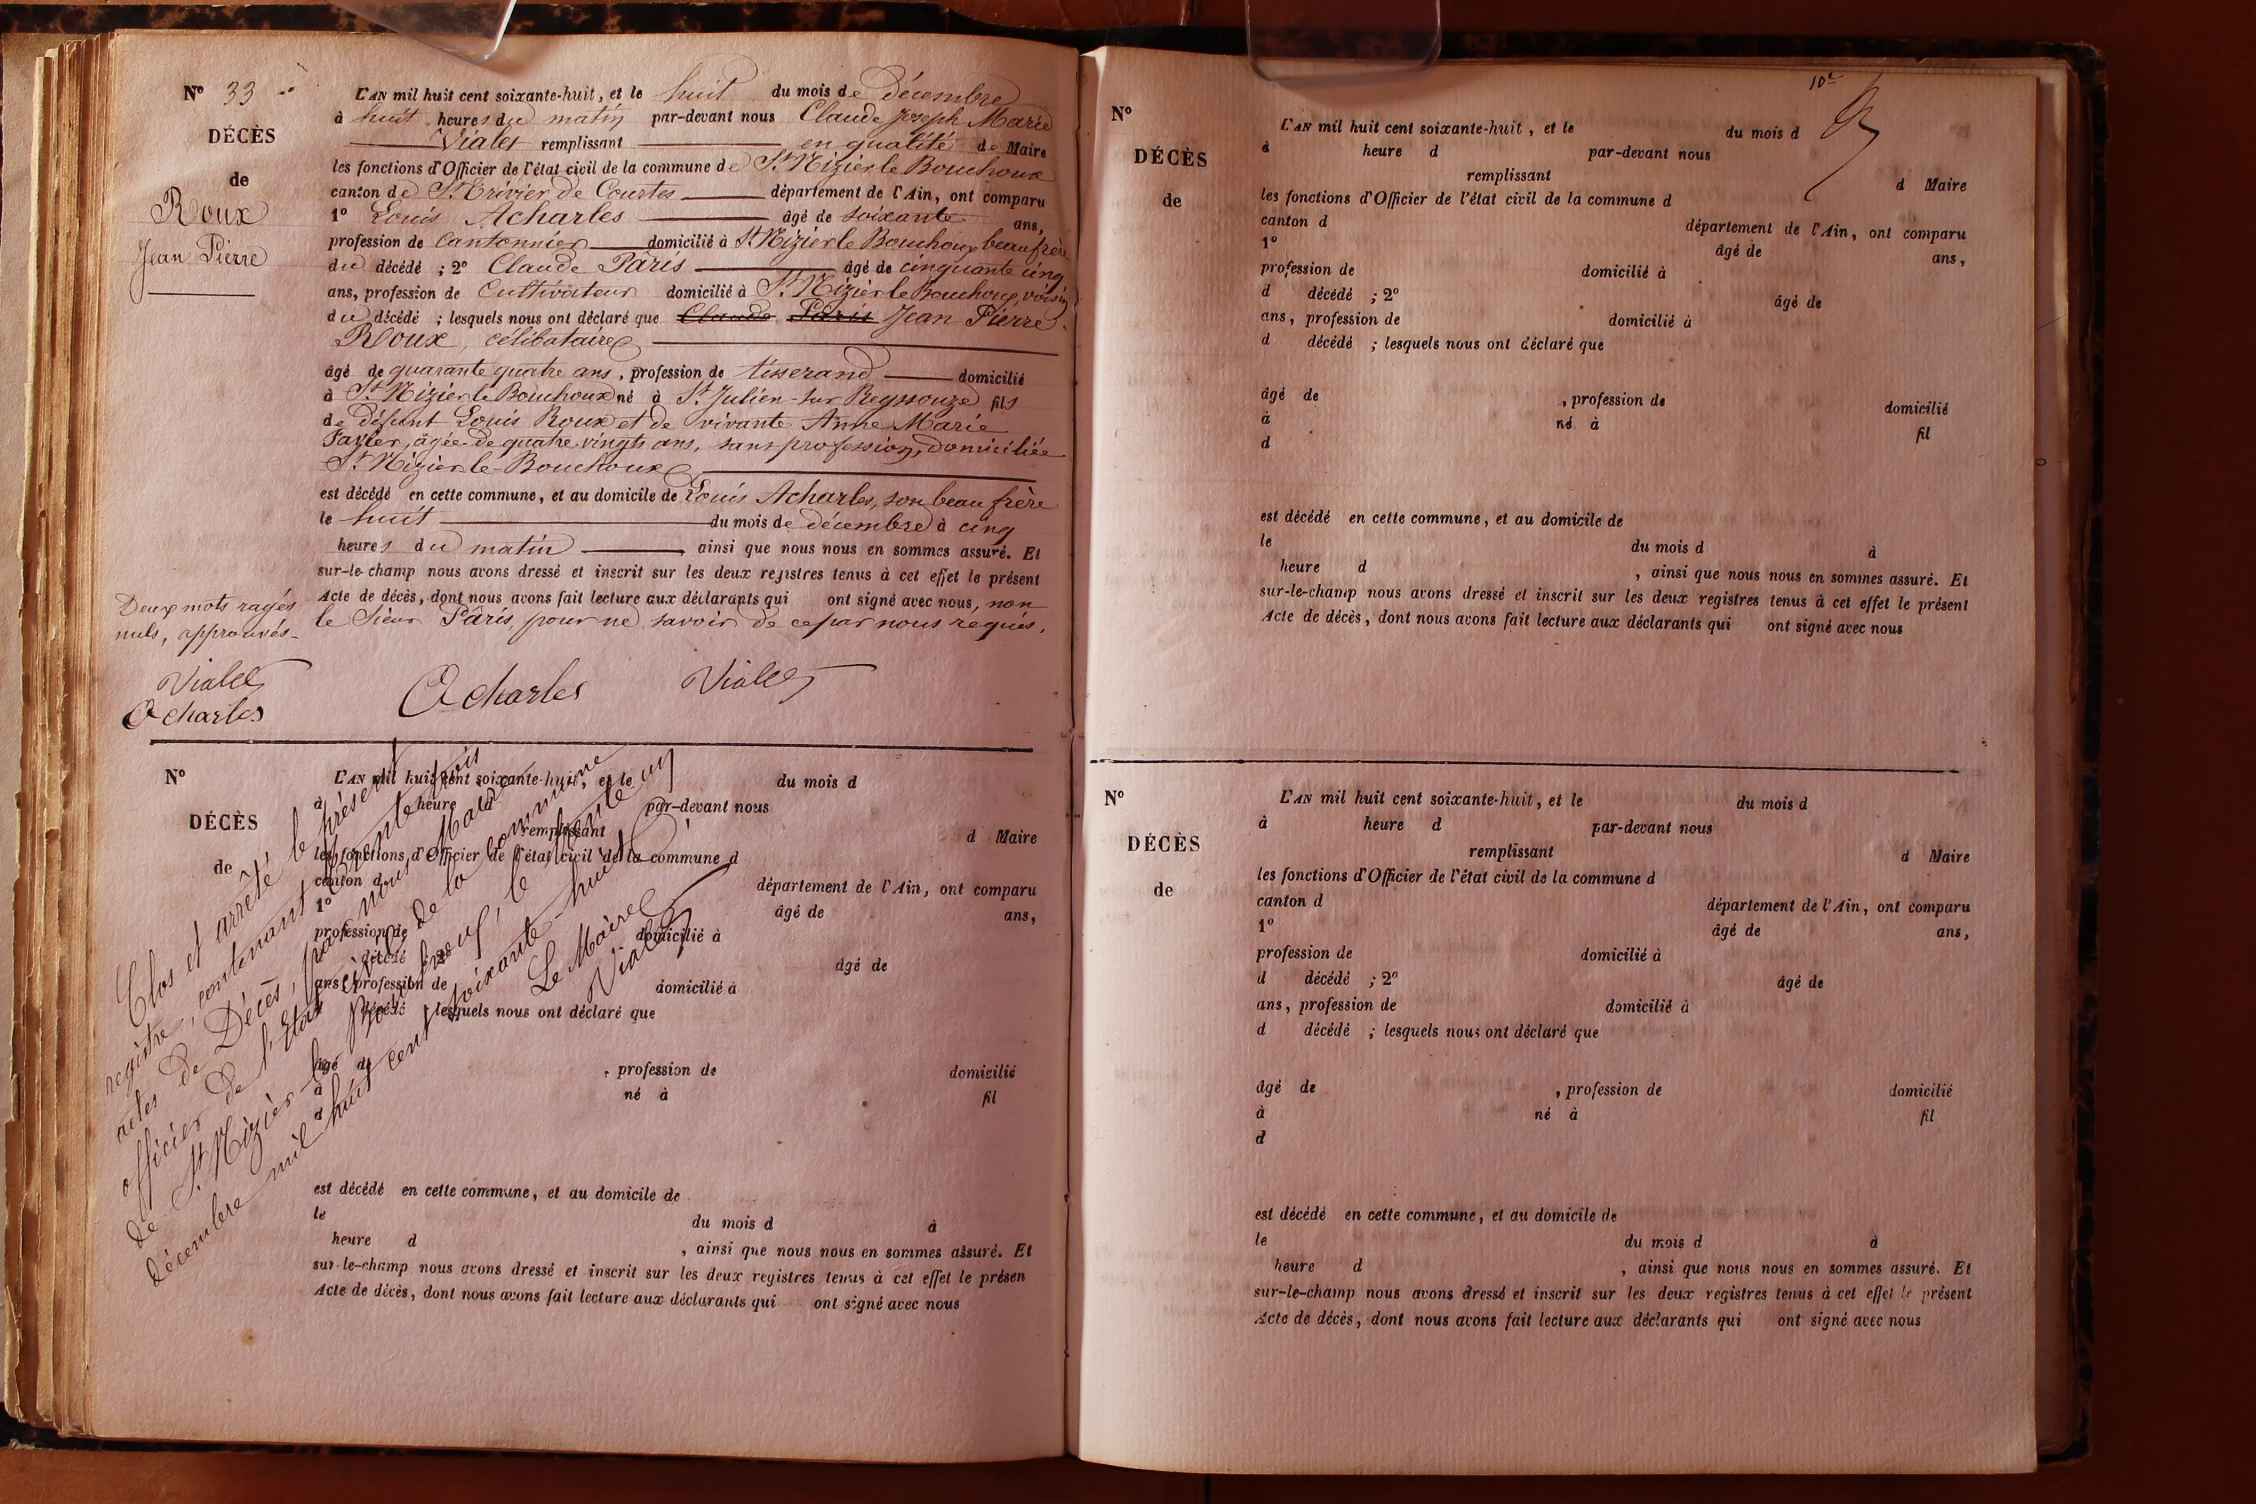 N° 33
DÉCÈS
de
Roux
Jean Pierre
L'AN mil huit cent soixante-huit, et le huit du mois de décembre
à huit heures du matin par-devant nous Claude Joseph Marie
Vialet remplissant en qualité de Maire
les fonctions d'Officier de l'état civil de la commune de St Nizier le Bouchoux
canton de St Trivier de Courtes département de l'Ain, ont comparu
1° Louis Acharles âgé de soixante ans,
profession de Cantonnier domicilié à St Nizier le Bouchoux beau frère
du décédé ; 2° Claude Pâris âgé de cinquante cinq
ans, profession de Cultivateur domicilié à St Nizier le Bouchoux, voisin
du décédé ; lesquels nous ont déclaré que Claude Pâris Jean Pierre
Roux, célibataire
âgé de quarante quatre ans, profession de tisserand domicilié
à St Nizier le Bouchoux né à St Julien-sur Reyssouze fils
de défunt Louis Roux et de vivante Anne Marie
âgée de quatre vingts ans, sans profession, domiciliée
St Nizier-le-Bouchoux
est décédé en cette commune, et au domicile de Louis Acharles, son beau frère
le huit du mois de décembre à cinq
heures du matin, ainsi que nous nous en sommes assuré. Et
sur-le-champ nous avons dressé et inscrit sur les deux registres tenus à cet effet le présent
Acte de décès, dont nous avons fait lecture aux déclarants qui ont signé avec nous, non
le Sieur Pâris, pour ne savoir de ce par nous requis.
Deux mots rayés
nuls, approuvés-
Vialet
Acharles
Acharles
Vialet
N°
DÉCÈS
de
L'AN mil huit cent soixante-huit, et le du mois d
à heure d par-devant nous
remplissant d Maire
les fonctions d'Officier de l'état civil de la commune d
canton d département de l'Ain, ont comparu
1° âgé de ans,
profession de domicilié à
décédé âgé de
ans, profession de domicilié à
décédé lesquels nous ont déclaré que
âgé de , profession de domicilié
à né à fil
d
est décédé en cette commune, et au domicile de
le du mois d à
heure d , ainsi que nous nous en sommes assuré. Et
sur-le-champ nous avons dressé et inscrit sur les deux registres tenus à cet effet le présen
Acte de décès, dont nous avons fait lecture aux déclarants qui ont signé avec nous
Clos et arrêté le présent
registre, contenant trente trois
actes de Décès, par nous Maire
officier de l'état civil de la commune
de St Nizier-le Bouchoux, le trente un
décembre mil huit cent soixante-huit
Le Maire
Vialet
10e
N°
DÉCÈS
de
L'AN mil huit cent soixante-huit, et le du mois d
à heure d par-devant nous
remplissant d Maire
les fonctions d'Officier de l'état civil de la commune d
canton d département de l'Ain, ont comparu
1° âgé de ans,
profession de domicilié à
d décédé ; 2° âgé de
ans, profession de domicilié à
d décédé ; lesquels nous ont déclaré que
âgé de , profession de domicilié
à né à fil
d
est décédé en cette commune, et au domicile de
le du mois d à
heure d , ainsi que nous nous en sommes assuré. Et
sur-le-champ nous avons dressé et inscrit sur les deux registres tenus à cet effet le présent
Acte de décès, dont nous avons fait lecture aux déclarants qui ont signé avec nous
N°
DÉCÈS
de
L'AN mil huit cent soixante-huit, et le du mois d
à heure d par-devant nous
remplissant d Maire
les fonctions d'Officier de l'état civil de la commune d
canton d département de l'Ain, ont comparu
1° âgé de ans,
profession de domicilié à
d décédé ; 2° âgé de
ans, profession de domicilié à
d décédé ; lesquels nous ont déclaré que
âgé de , profession de domicilié
à né à fil
d
est décédé en cette commune, et au domicile de
le du mois d à
heure d , ainsi que nous nous en sommes assuré. Et
sur-le-champ nous avons dressé et inscrit sur les deux registres tenus à cet effet le présent
Acte de décès, dont nous avons fait lecture aux déclarants qui ont signé avec nous